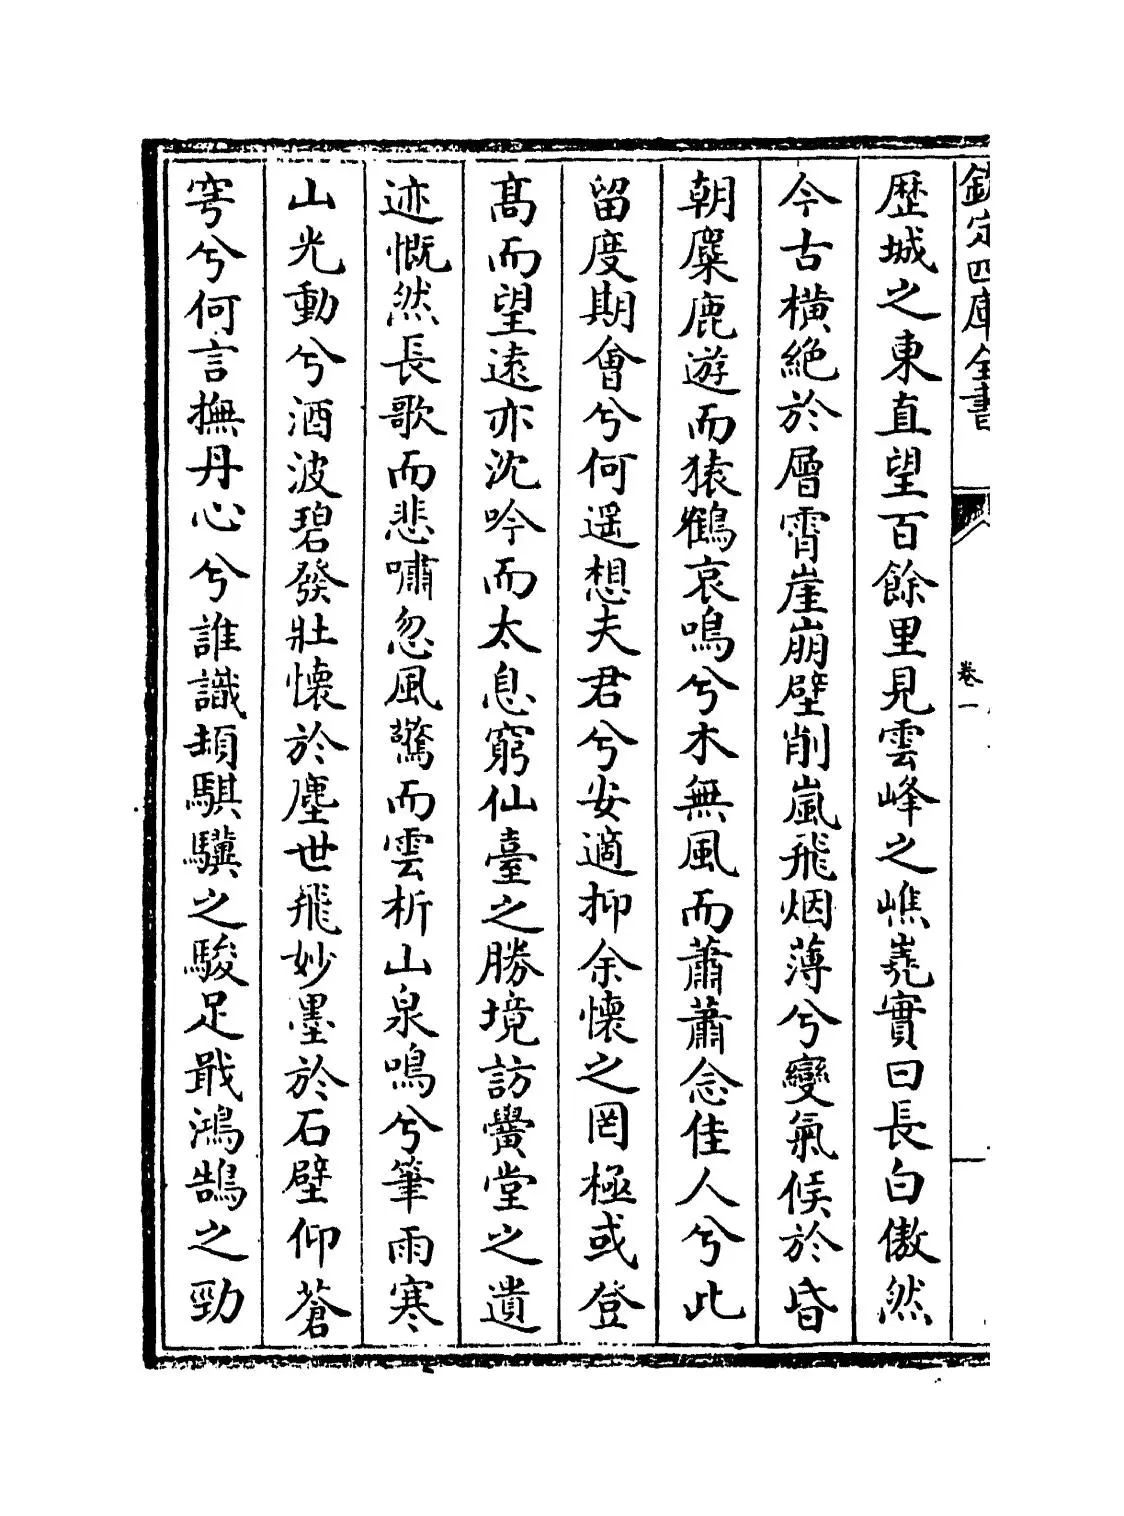 欽定四庫全書
卷一
歷城之東直望百餘里見雲峰之嶕嶤實曰長白傲然
今古橫絶於層霄崖崩壁削嵐飛烟薄兮變氣候於昏
朝麋鹿遊而猿鶴哀鳴兮木無風而蕭蕭念佳人兮此
留度期會兮何遥想夫君兮安適抑余懷之罔極或登
髙而望遠亦沈吟而太息窮仙臺之勝境訪黌堂之遺
迹慨然長歌而悲嘯忽風驚而雲析山泉鳴兮筆雨寒
山光動兮酒波碧發壯懷於塵世飛妙墨於石壁仰蒼
穹兮何言撫丹心兮誰識頡騏驥之駿足戢鴻鵠之勁